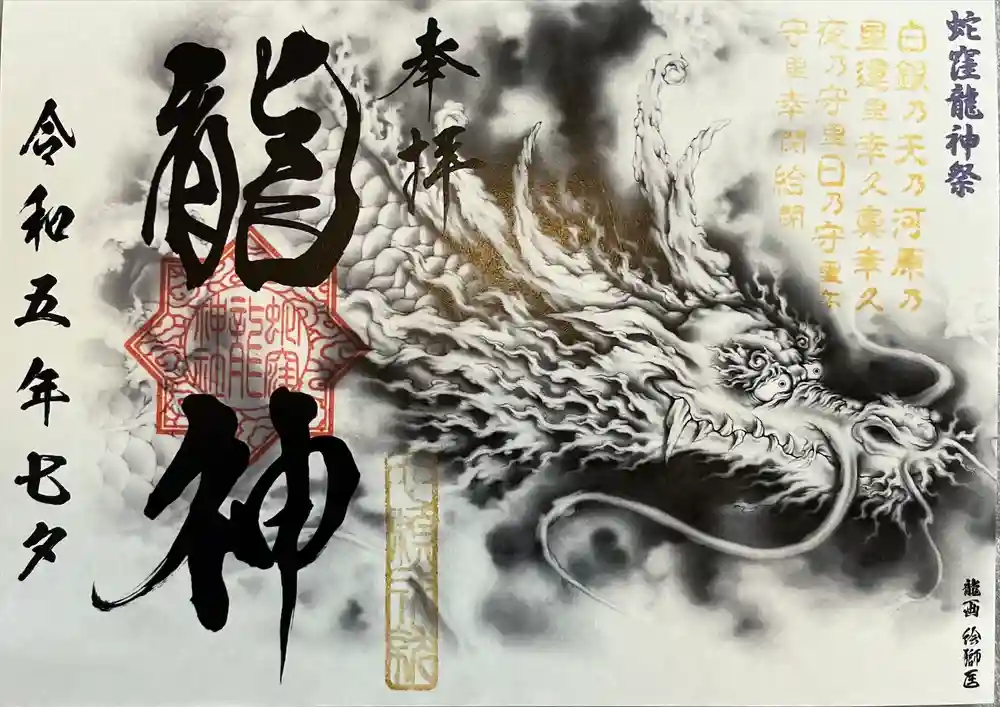 蛇窪龍神祭
白銀乃天乃河原乃
星運星幸久真幸久
夜乃守里日乃守里
守里幸聞給聞
奉拝
龍神
蛇窪龍神社
令和五年七夕
龍画 絵獅匠